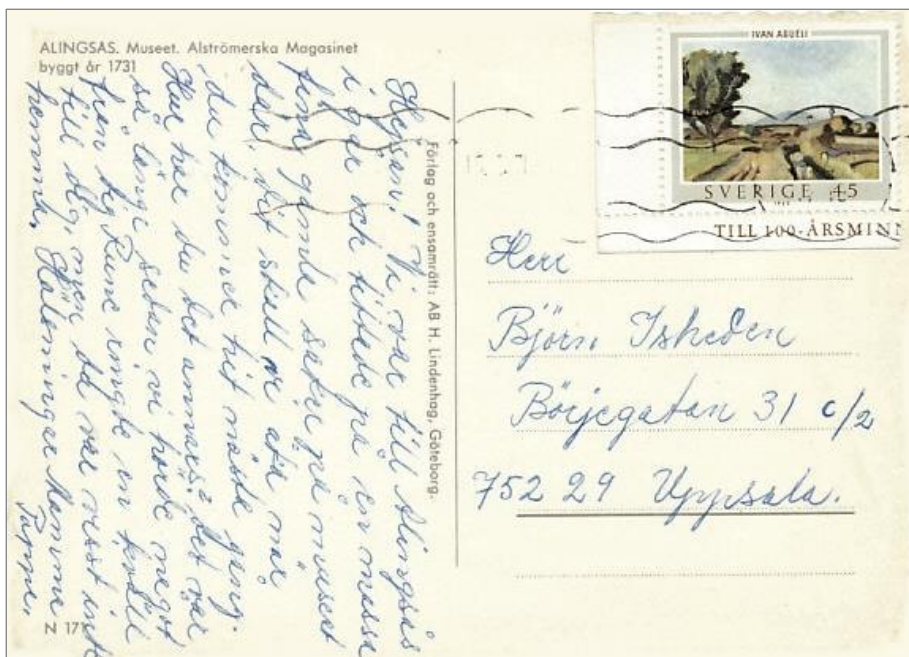 ALINGSÅS. Museet. Alströmerska Magasinet
byggt år 1731
Hejsan! Vi var till Alingsås
i går och tittade på en massa
fina gamla saker på museet
där. Dit skall vi åka när
du kommer hit nästa gång.
Hur har du det annars? Det var
så länge sedan vi hörde något
från dig. Rune ringde en kväll
till dig, men du var visst inte
hemma. Hälsningar Mamma
Pappa.
N 171
Förlag och ensamrätt: AB H. Lindenhag, Göteborg.
IVAN AGUÉLI
SVERIGE 45
TILL 100-ÅRSMINN
Herr
Björn Isheden
Börjegatan 31 c/2
752 29 Uppsala.